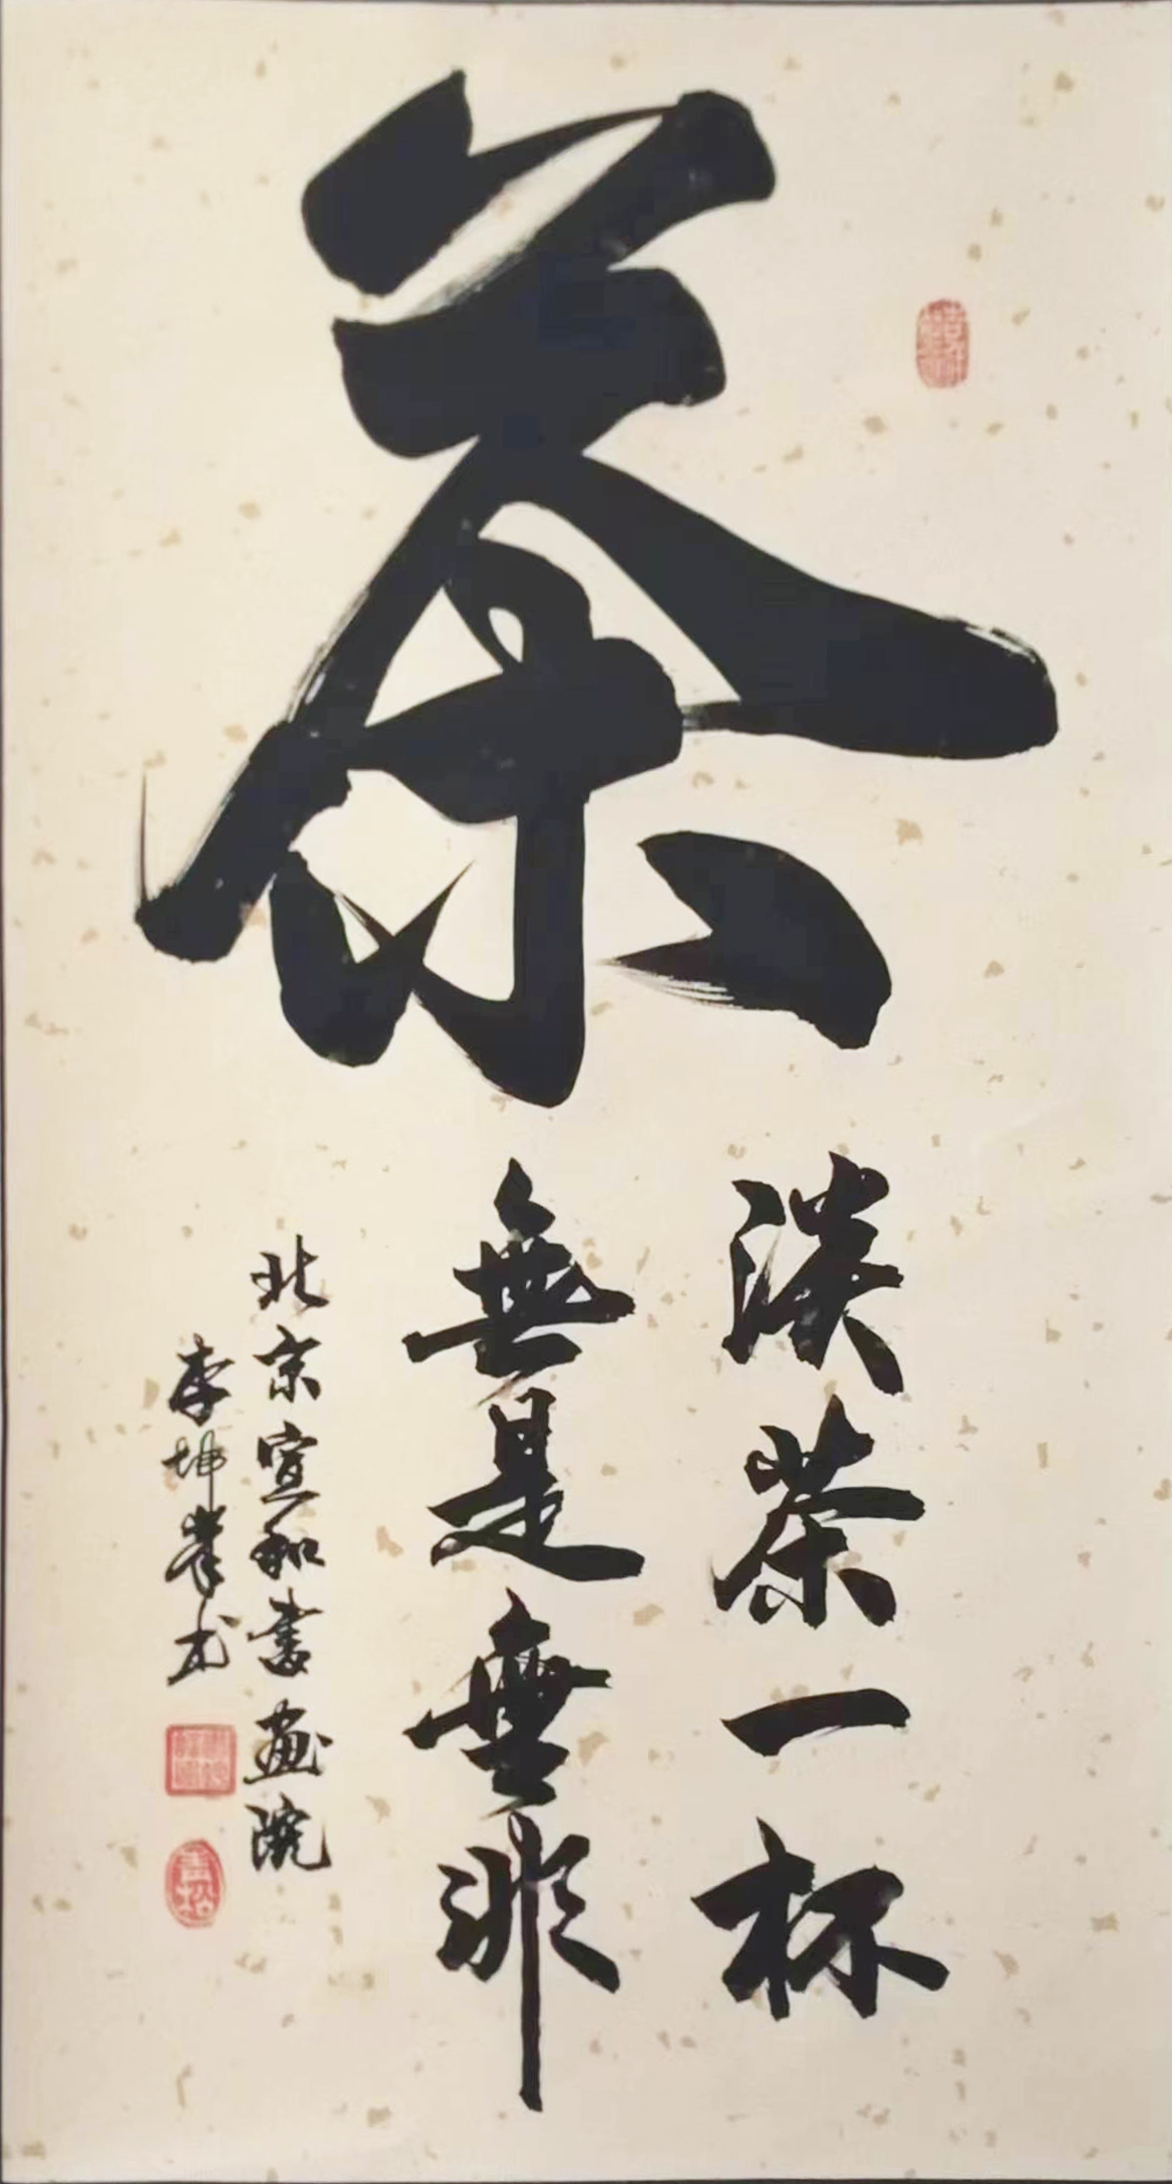 茶
淡茶一杯
無是無非
北京宣和書画院
李坤峯书